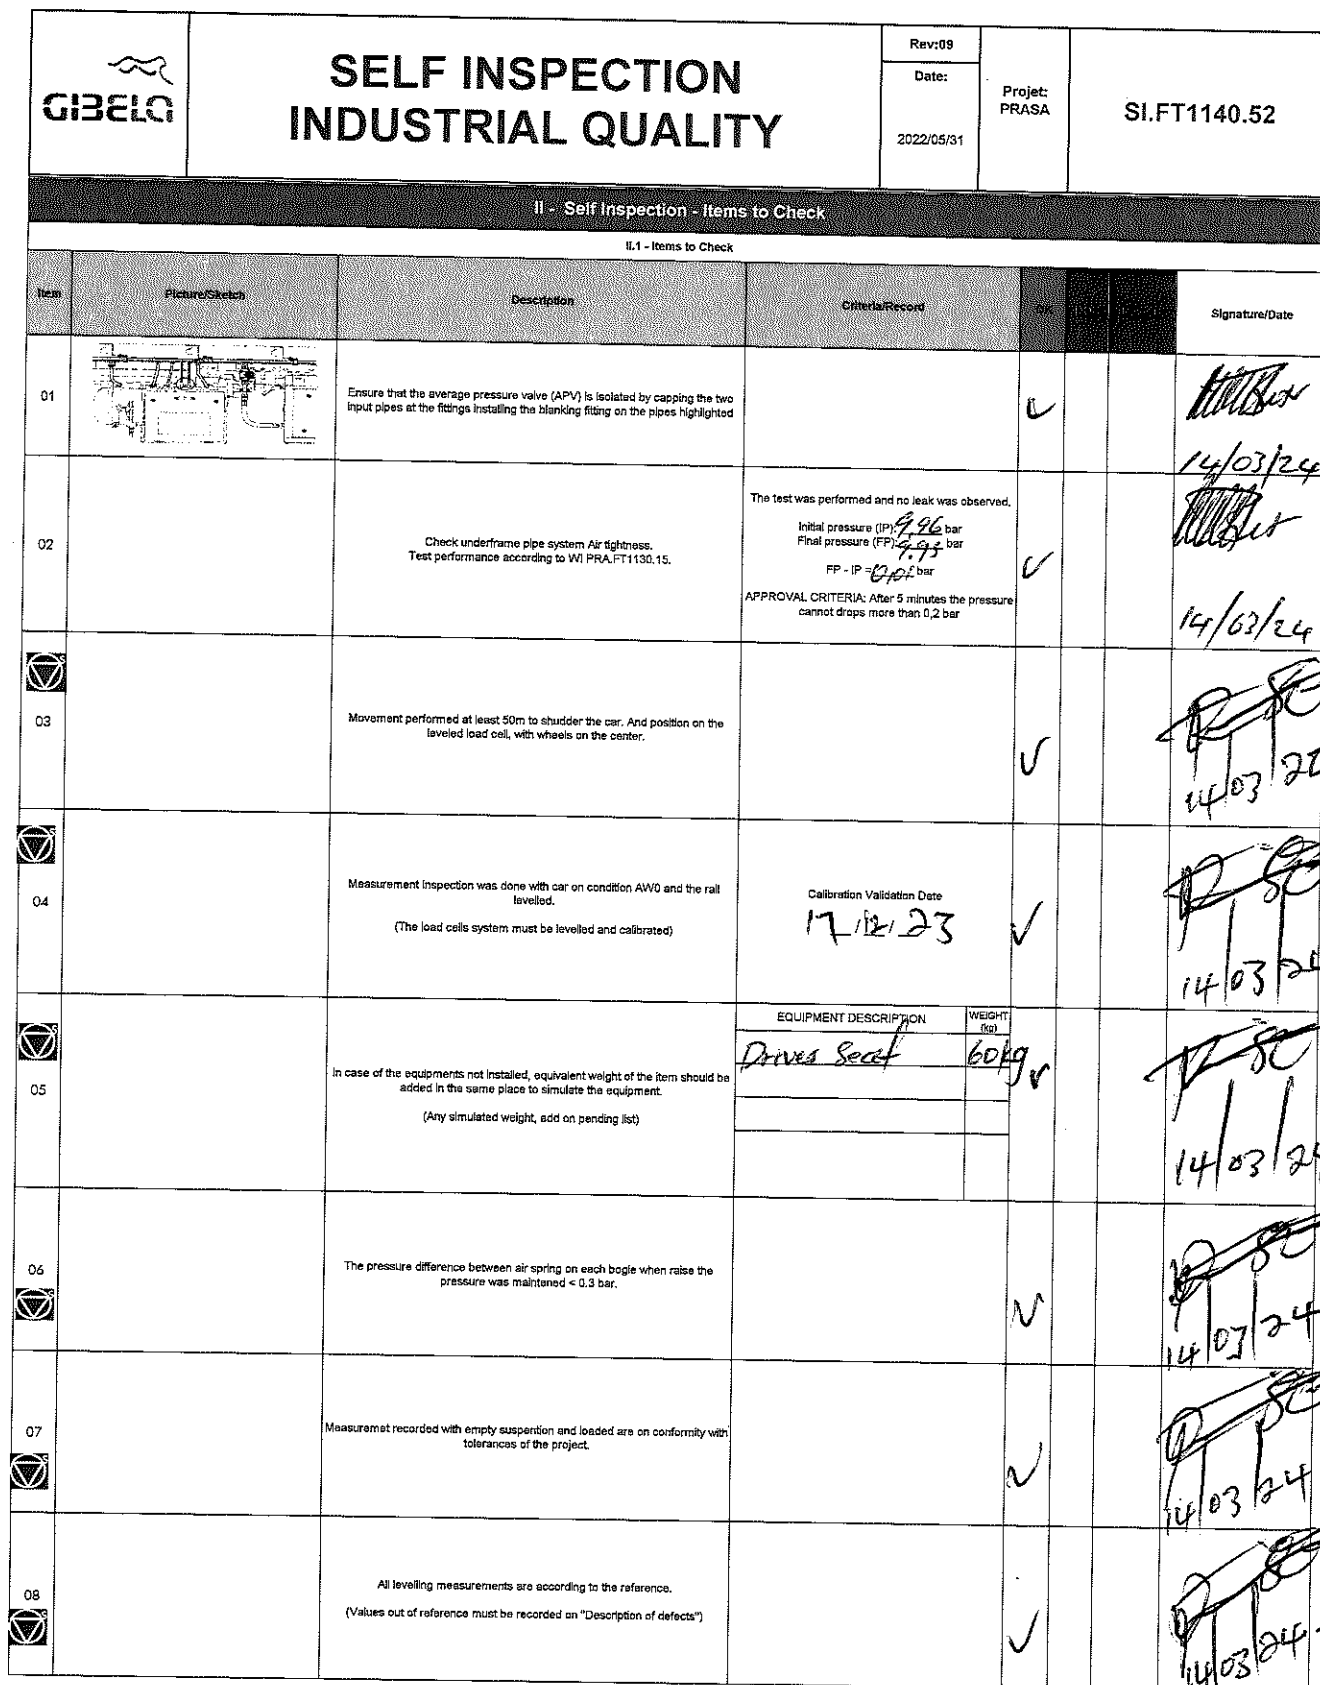 GIBELA
SELF INSPECTION
INDUSTRIAL QUALITY
Rev:09
Date:
2022/05/31
Projet:
PRASA
SI.FT1140.52
II - Self Inspection - Items to Check
II.1 - Items to Check
Item
Picture/Sketch
Description
Criteria/Record
OK
Signature/Date
01
Ensure that the average pressure valve (APV) is isolated by capping the two
input pipes at the fittings installing the blanking fitting on the pipes highlighted
14/03/24
02
Check underframe pipe system Air tightness.
Test performance according to WI PRA.FT1130.15.
The test was performed and no leak was observed.
Initial pressure (IP): 9,96 bar
Final pressure (FP): 9.95 bar
FP - IP = bar
APPROVAL CRITERIA: After 5 minutes the pressure
cannot drops more than 0,2 bar
14/03/24
03
Movement performed at least 50m to shudder the car. And position on the
leveled load cell, with wheels on the center.
14/03
04
Measurement inspection was done with car on condition AW0 and the rail
levelled.
(The load cells system must be levelled and calibrated)
Calibration Validation Date
17/12/23
14/03/24
05
In case of the equipments not installed, equivalent weight of the item should be
added in the same place to simulate the equipment.
(Any simulated weight, add on pending list)
EQUIPMENT DESCRIPTION
WEIGHT
(kg)
60kg
14/03/24
06
The pressure difference between air spring on each bogie when raise the
pressure was maintened < 0.3 bar.
14/03/24
07
Measuremet recorded with empty suspention and loaded are on conformity with
tolerances of the project.
14/03/24
08
All levelling measurements are according to the reference.
(Values out of reference must be recorded on "Description of defects")
14/03/24